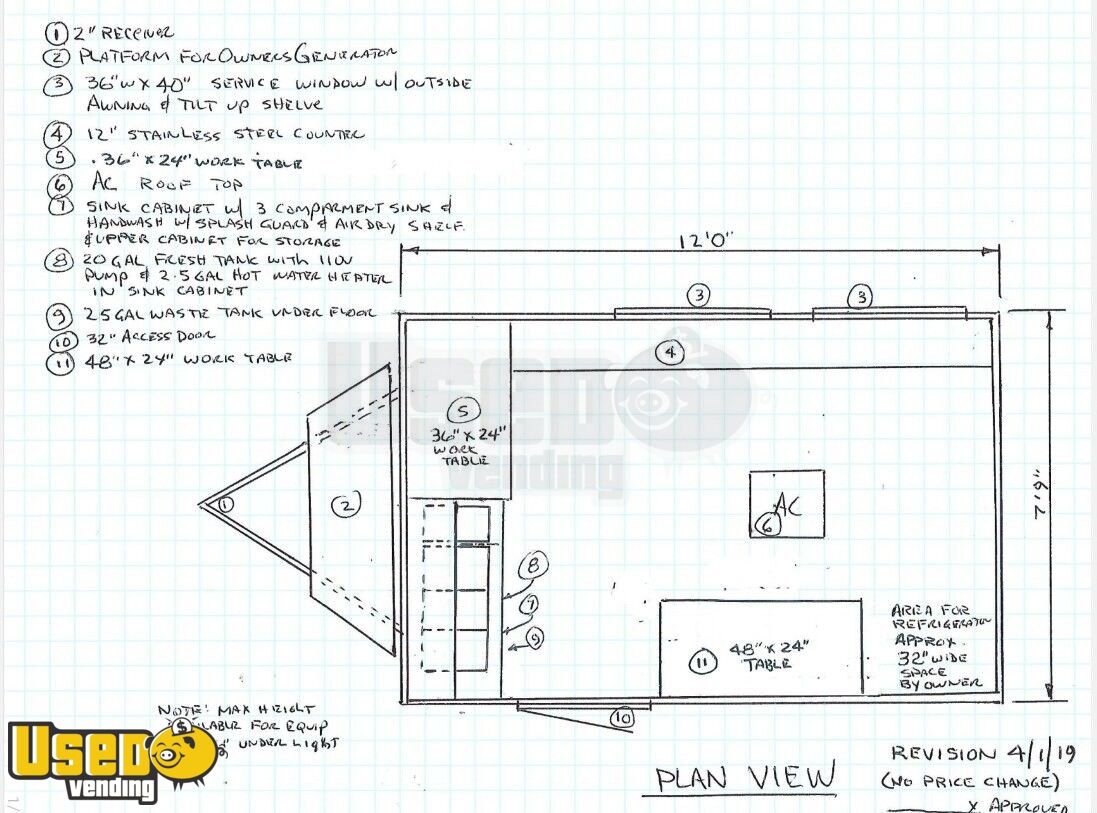 ① 2" RECEIVER
② PLATFORM FOR OWNERS GENERATOR
③ 36"W X 40" SERVICE WINDOW W/ OUTSIDE
AWNING & TILT UP SHELVE
④ 12" STAINLESS STEEL COUNTER
⑤ .36" X 24" WORK TABLE
⑥ AC ROOF TOP
⑦ SINK CABINET W/ 3 COMPARMENT SINK &
HANDWASH W/ SPLASH GUARD & AIR DRY SHELF
& UPPER CABINET FOR STORAGE
⑧ 20 GAL FRESH TANK WITH 110V
PUMP & 2.5 GAL HOT WATER HEATER
IN SINK CABINET
⑨ 25 GAL WASTE TANK UNDER FLOOR
⑩ 32" ACCESS DOOR
⑪ 48" X 24" WORK TABLE
12'0"
③ ③
④
USED
vending
⑤
36" X 24"
WORK
TABLE
① ②
AC
⑥
7'9"
⑧
⑦
⑨
⑪ 48" X 24"
TABLE
AREA FOR
REFRIGERATOR
APPROX.
32" WIDE
SPACE
BY OWNER
⑩
NOTE: MAX HEIGHT
FOR EQUIP
UNDER LIGHT
USED
vending
$
PLAN VIEW
REVISION 4/1/19
(NO PRICE CHANGE)
X APPROVED